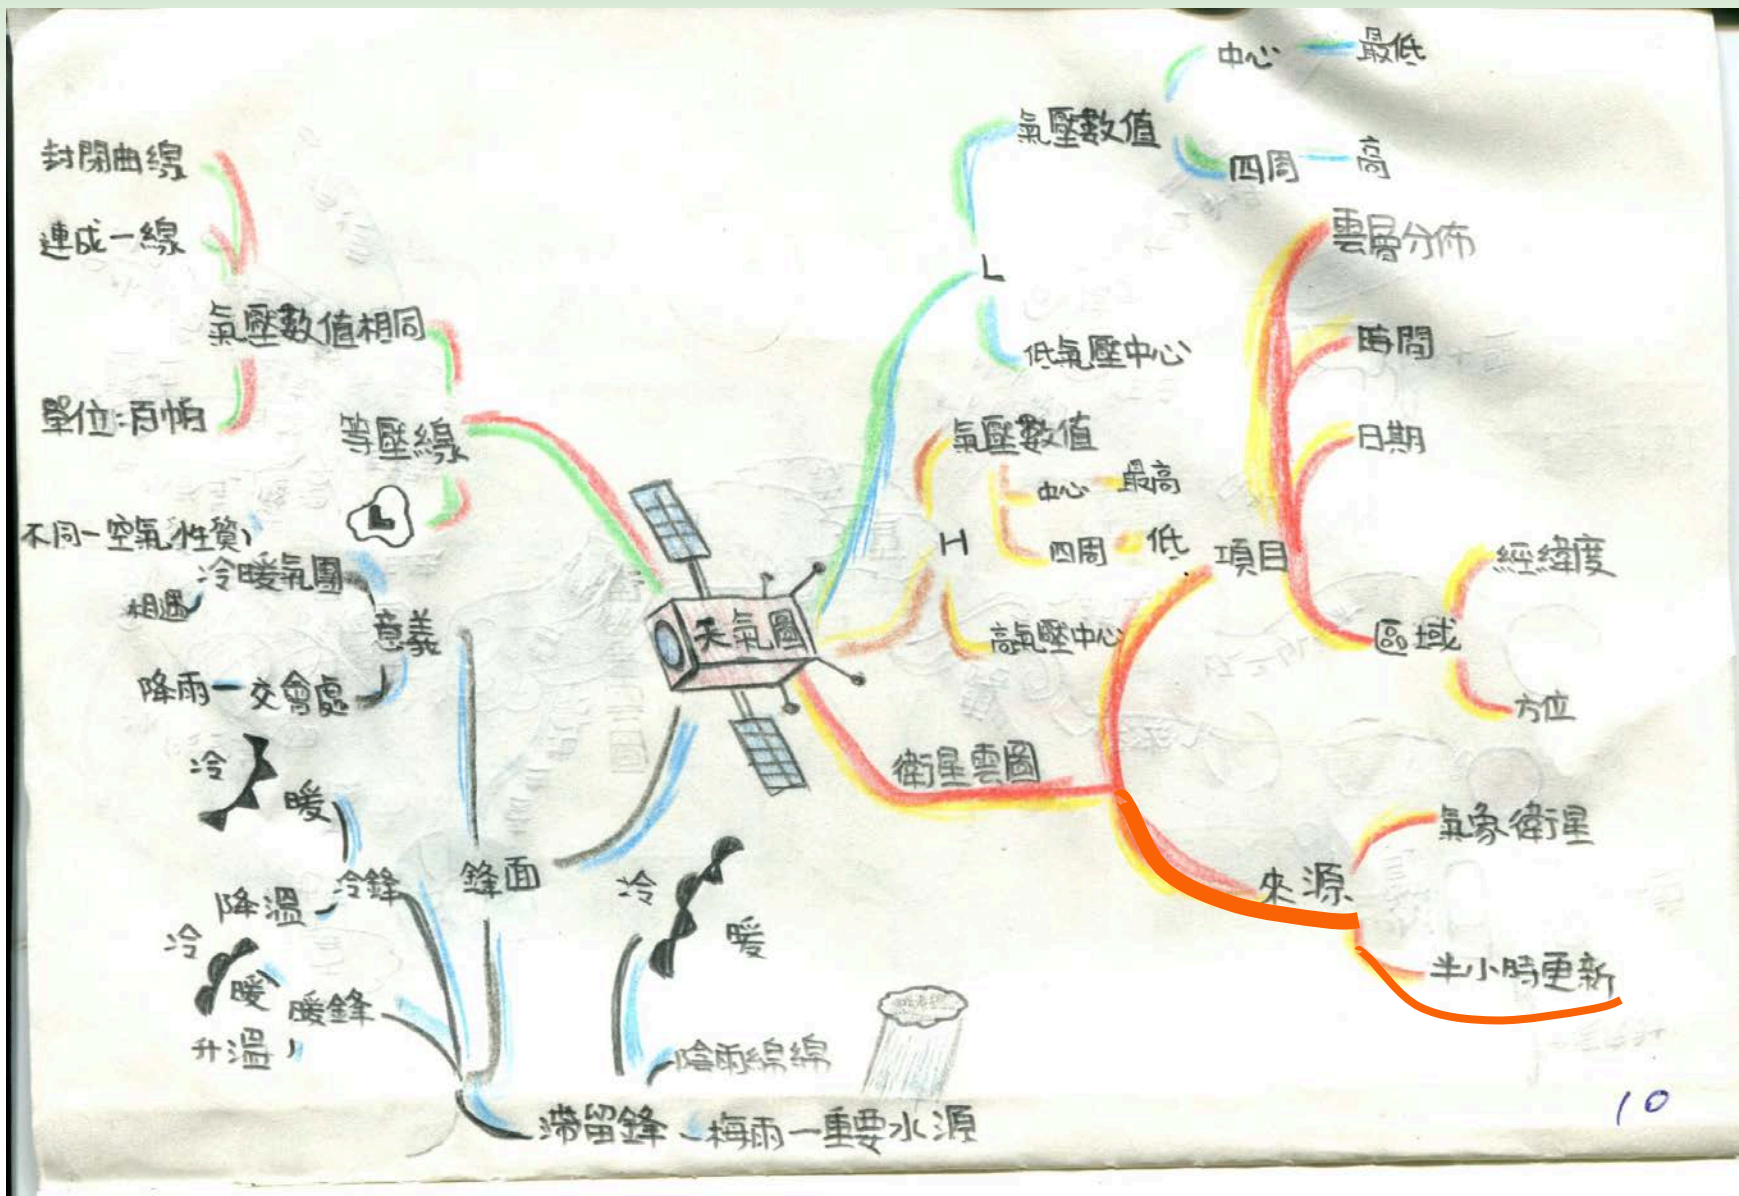 天氣圖
等壓線
氣壓數值相同
封閉曲線
連成一線
單位:百帕
L
L
氣壓數值
中心 最低
四周 高
低氣壓中心
H
氣壓數值
中心 最高
四周 低
高氣壓中心
衛星雲圖
項目
雲層分佈
時間
日期
區域
經緯度
方位
來源
氣象衛星
半小時更新
鋒面
意義
冷暖氣團
不同一空氣性質
相遇
降雨一交會處
冷鋒
冷
暖
降溫
暖鋒
冷
暖
升溫
滯留鋒
冷
暖
陰雨綿綿
梅雨一重要水源
10